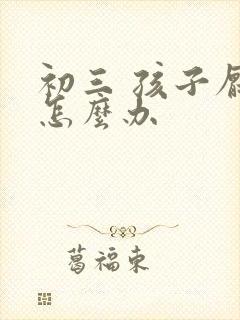 初三 孩子
怎麼办
葛福東